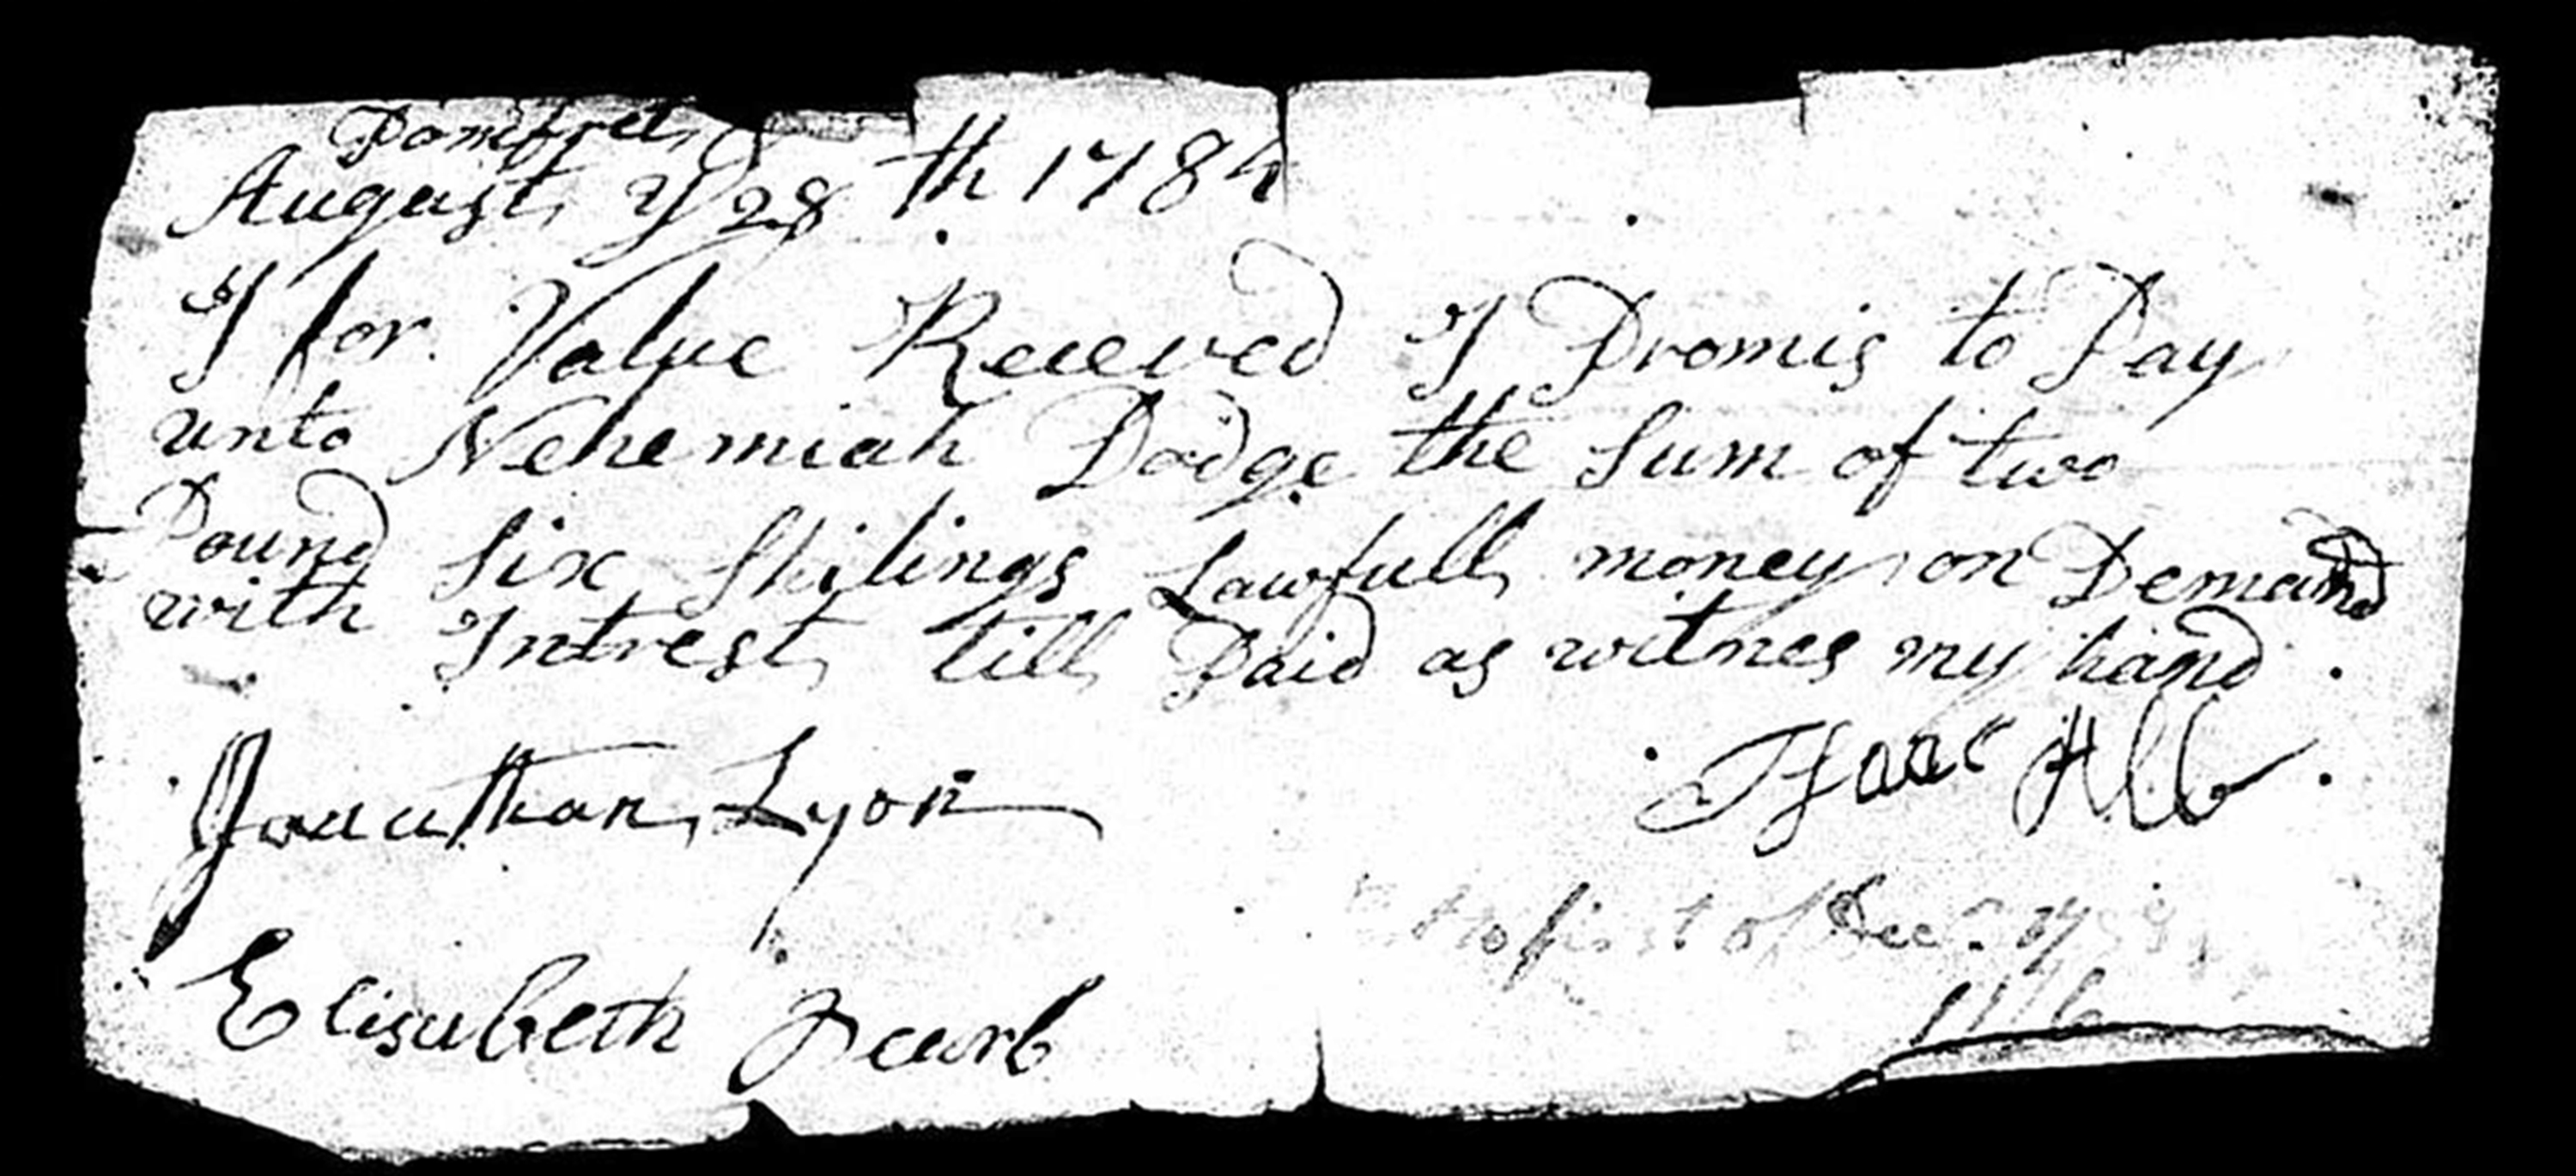 Pomfret
August, ye 28 th 1784
I for Value Receved I Promis to Pay
unto Nehemiah Dodge the Sum of two
Pound Six Shilings Lawfull money on Demand
with Intrest till Paid as witnes my hand
Jonathan Lyon
Isaac Alb
Elisabeth